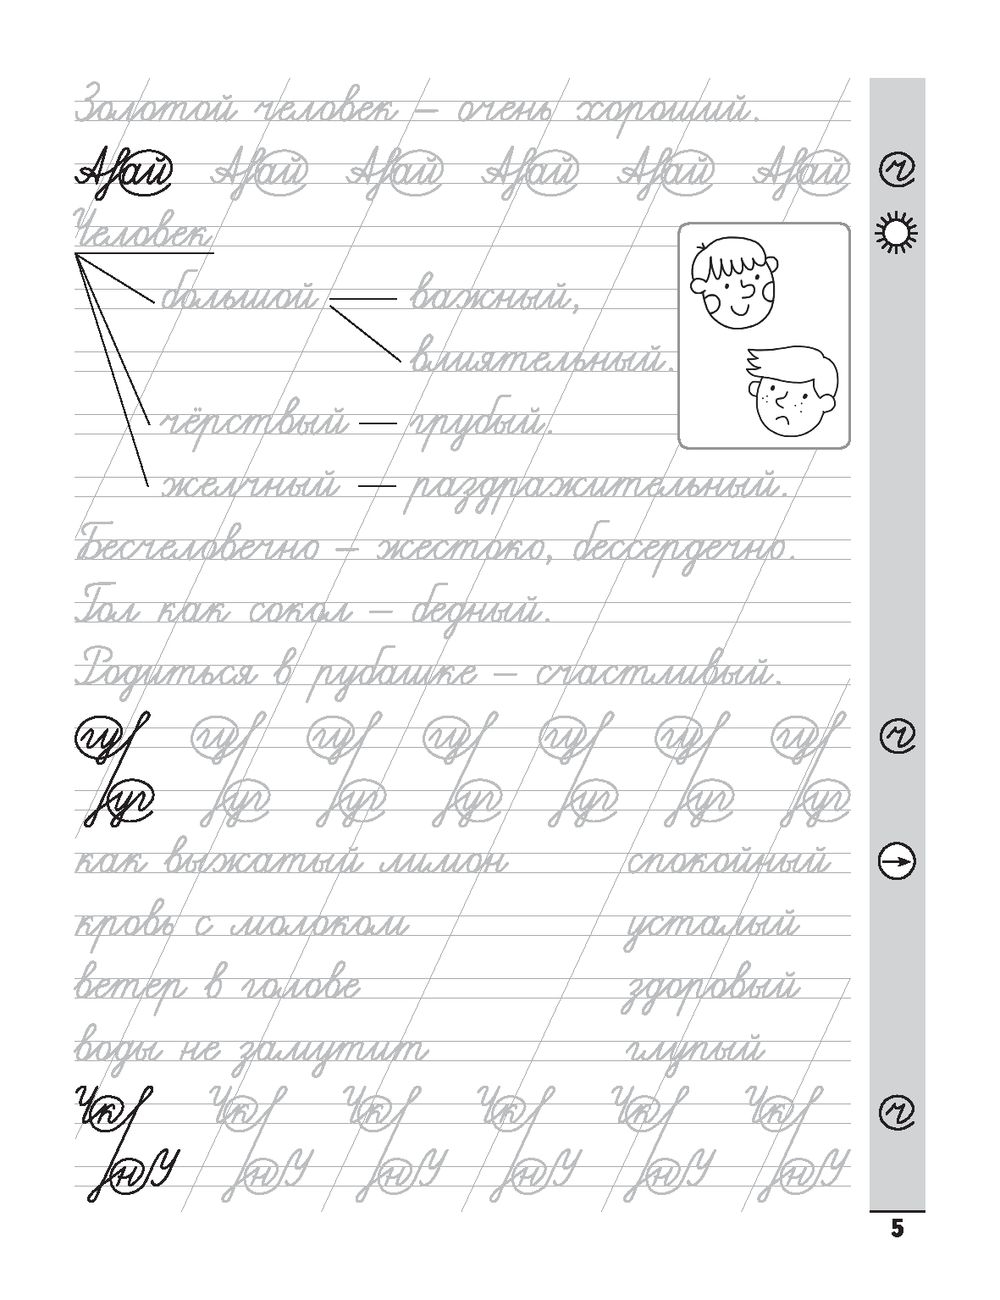 Золотой человек – очень хороший.
Ай Ай Ай Ай Ай Ай
Человек
большой — важный,
влиятельный.
чёрствый — грубый.
желчный — раздражительный.
Бесчеловечно – жестоко, бессердечно.
Гол как сокол – бедный.
Родиться в рубашке – счастливый.
гу гу гу гу гу гу гу
уг уг уг уг уг уг уг
как выжатый лимон спокойный
кровь с молоком усталый
ветер в голове здоровый
воды не замутит глупый
Чк Чк Чк Чк Чк Чк
нУ нУ нУ нУ нУ нУ
5